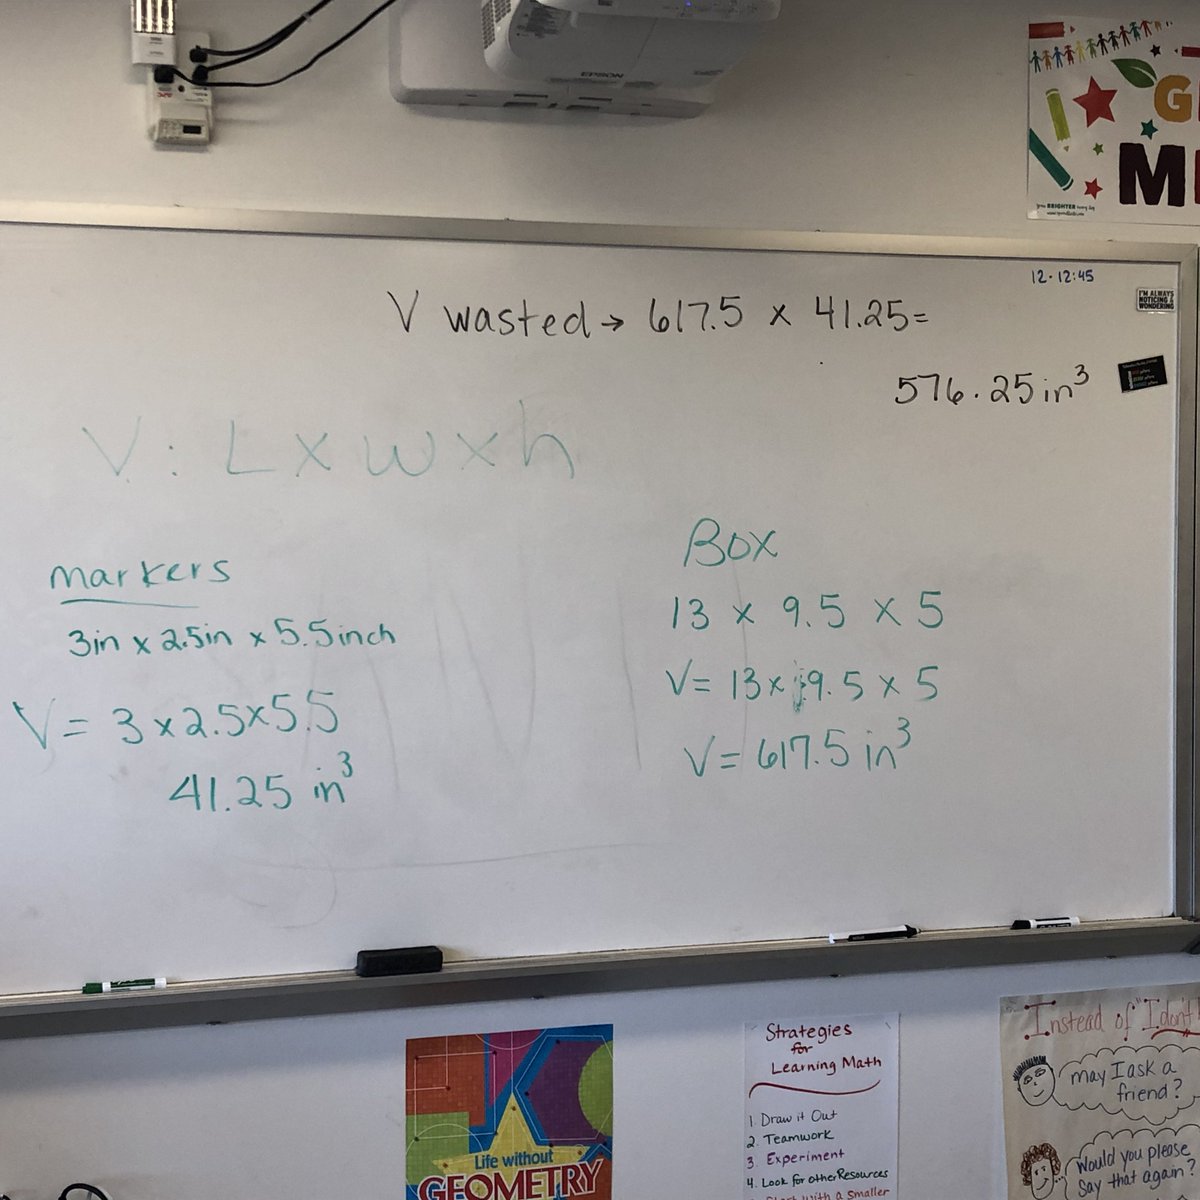 EPSON
G
M
your BRIGHTER
12-12:45
I'M ALWAYS
NOTICING &
WONDERING
V wasted → 617.5 x 41.25=
576.25 in³
V: L x w x h
markers
3in x 2.5in x 5.5inch
V= 3 x 2.5x5.5
41.25 in³
Box
13 x 9.5 x 5
V= 13x 9.5 x 5
V= 617.5 in³
Life without
GEOMETRY
Strategies
for
Learning Math
1. Draw it Out
2. Teamwork
3. Experiment
4. Look for other Resources
Start with a smaller
Instead of "I don't
may I ask a
friend?
Would you please
say that again?